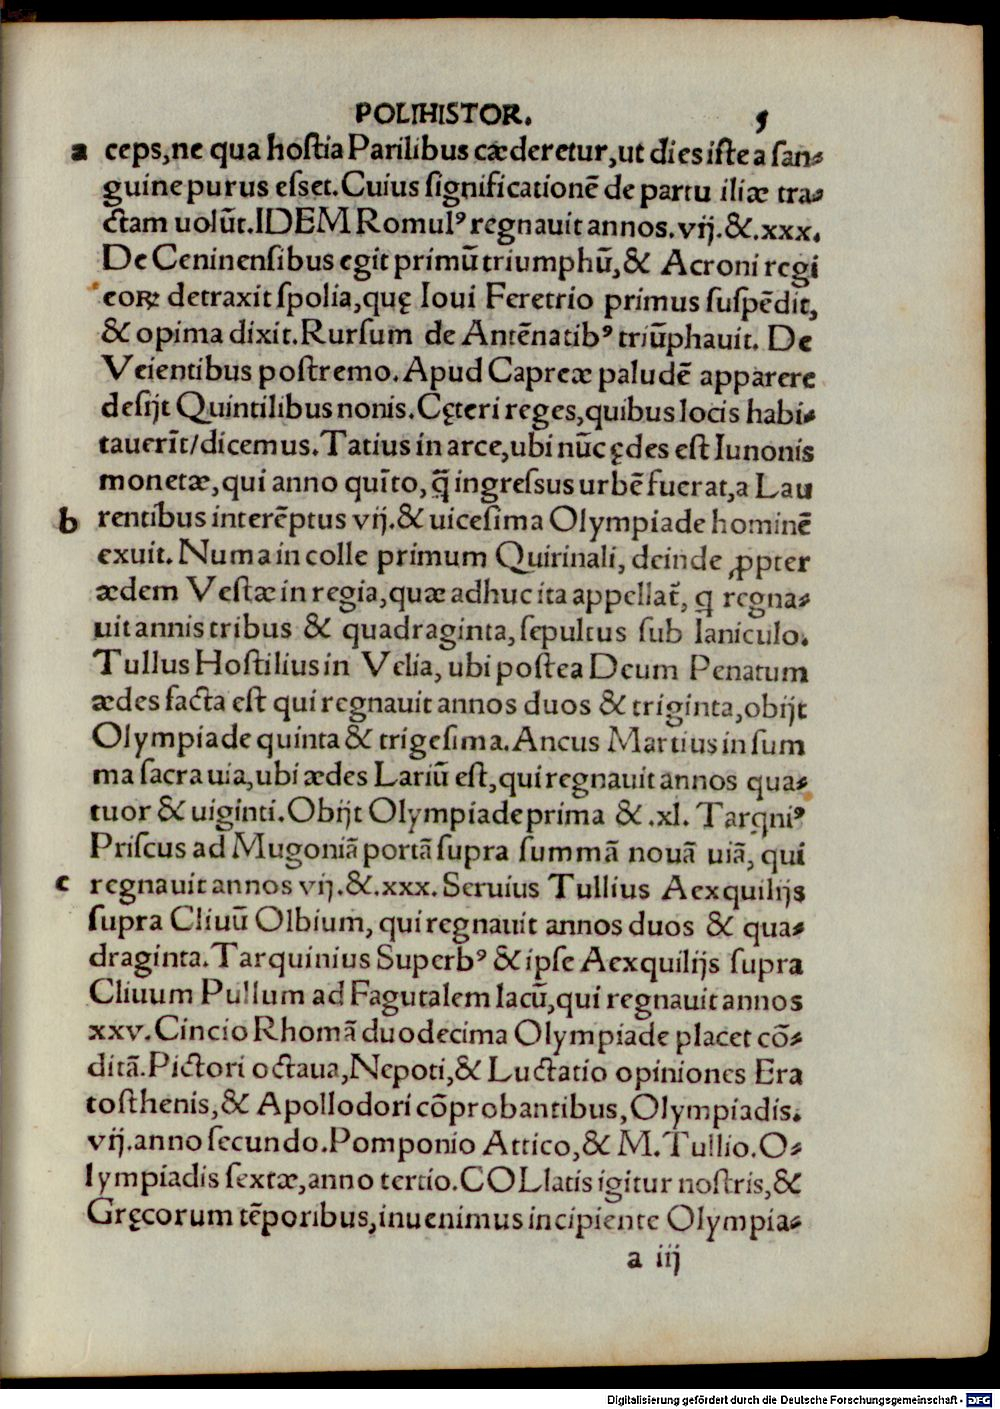 POLIHISTOR. 5
a ceps,ne qua hostia Parilibus cæderetur,ut dies iste a san-
guine purus esset.Cuius significationē de partu iliæ tra-
ctam uolūt.IDEM Romulꝰ regnauit annos.vij.&.xxx.
De Ceninensibus egit primū triumphū,& Acroni regi
eoꝝ detraxit spolia,quę Ioui Feretrio primus suspēdit,
& opima dixit.Rursum de Antēnatibꝰ triūphauit. De
Veientibus postremo.Apud Capreæ paludē apparere
desijt Quintilibus nonis.Cęteri reges,quibus locis habi-
tauerīt/dicemus.Tatius in arce,ubi nūc ędes est Iunonis
monetæ,qui anno quīto,q̄ ingressus urbē fuerat,a Lau
b rentibus interēptus vij.& uicesima Olympiade hominē
exuit.Numa in colle primum Quirinali, deinde ꝓpter
ædem Vestæ in regia,quæ adhuc ita appellat̃, q regna-
uit annis tribus & quadraginta,sepultus sub Ianiculo.
Tullus Hostilius in Velia, ubi postea Deum Penatum
ædes facta est qui regnauit annos duos & triginta,obijt
Olympiade quinta & trigesima.Ancus Martius in sum
ma sacra uia,ubi ædes Lariū est,qui regnauit annos qua-
tuor & uiginti.Obijt Olympiade prima &.xl. Tarqniꝰ
Priscus ad Mugoniā portā supra summā nouā uiā, qui
c regnauit annos vij.&.xxx. Seruius Tullius Aexquilijs
supra Cliuū Olbium, qui regnauit annos duos & qua-
draginta.Tarquinius Superbꝰ & ipse Aexquilijs supra
Cliuum Pullum ad Fagutalem lacū,qui regnauit annos
xxv.Cincio Rhomā duodecima Olympiade placet cō-
ditā.Pictori octaua,Nepoti,& Luctatio opiniones Era
tosthenis,& Apollodori cōprobantibus,Olympiadis.
vij.anno secundo.Pomponio Attico,& M.Tullio.O-
lympiadis sextæ,anno tertio.COLlatis igitur nostris,&
Gręcorum tēporibus,inuenimus incipiente Olympia-
a iij
Digitalisierung gefördert durch die Deutsche Forschungsgemeinschaft - DFG